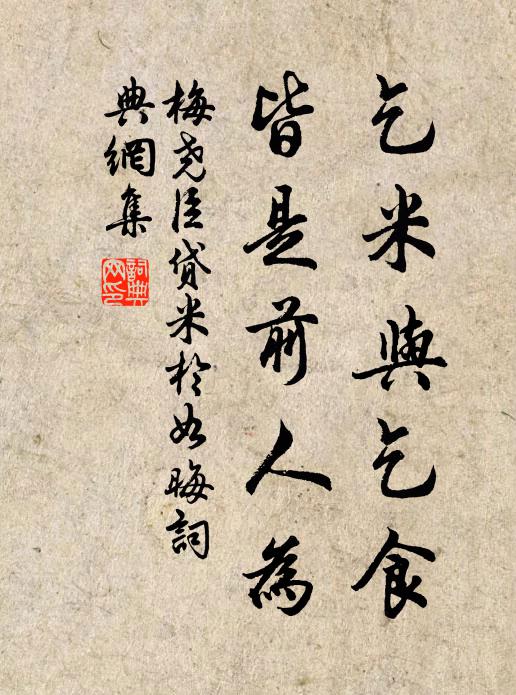 乞米與乞食
皆是前人為
梅尧臣貸米於如晦詞
典網集
詞典
网印